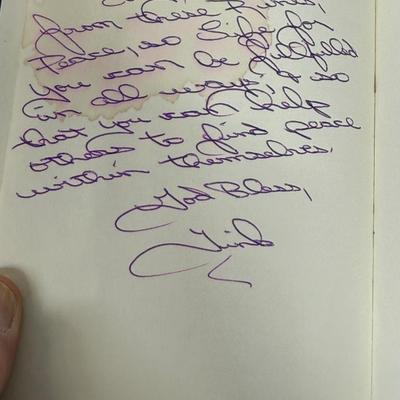 from these
Peace, so
you can be fulfilled
in all ways, & so
that you can help
others to find peace
within themselves.
God Bless,